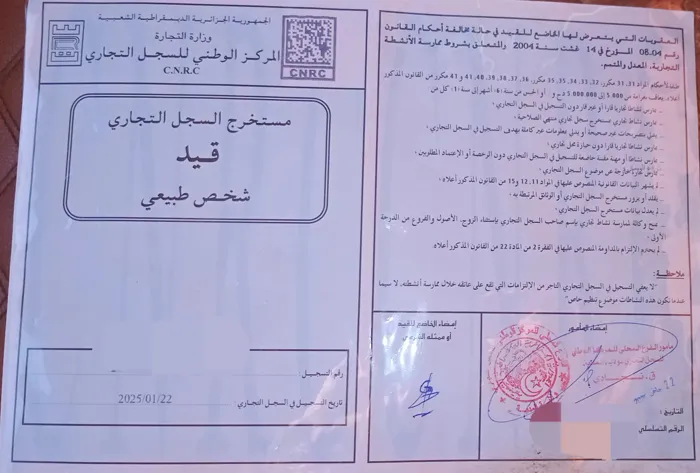 الجمهورية الجزائرية الديمقراطية الشعبية
وزارة التجارة
المركز الوطني للسجل التجاري
C.N.R.C
CNRC
مستخرج السجل التجاري
قيد
شخص طبيعي
رقم التسجيل
تاريخ التسجيل في السجل التجاري: 2025/01/22
العقوبات التي يتعرض لها الخاضع للقيد في حالة مخالفة أحكام القانون
رقم 08.04 المؤرخ في 14 غشت سنة 2004 والمتعلق بشروط ممارسة الأنشطة
التجارية، المعدل والمتمم.
طبقا لأحكام المواد 31، 31 مكرر، 32، 33، 34، 35، 35 مكرر، 36، 37، 38، 39، 40، 41 و 41 مكرر من القانون المذكور
أعلاه، يعاقب بغرامة من 5.000 إلى 5.000.000 دج و / أو الحبس من ستة (6) أشهر إلى سنة (1) كل من:
ـ يمارس نشاطا تجاريا قارا أو غير قار دون التسجيل في السجل التجاري،
ـ يمارس نشاط تجاري بمستخرج سجل تجاري منتهي الصلاحية،
ـ يدلي بتصريحات غير صحيحة أو يدلي بمعلومات غير كاملة بهدف التسجيل في السجل التجاري،
ـ يمارس نشاطا تجاريا قارا دون حيازة محل تجاري،
ـ يمارس نشاطا أو مهنة مقننة خاضعة للتسجيل في السجل التجاري دون الرخصة أو الإعتماد المطلوبين،
ـ يمارس تجارة خارجة عن موضوع السجل التجاري،
ـ لم يشهر البيانات القانونية المنصوص عليها في المواد 11، 12 و 15 من القانون المذكور أعلاه،
ـ يقلد أو يزور مستخرج السجل التجاري أو الوثائق المرتبطة به،
ـ لم يعدل بيانات مستخرج السجل التجاري،
ـ يمنح وكالة لممارسة نشاط تجاري بإسم صاحب السجل التجاري بإستثناء الزوج، الأصول والفروع من الدرجة
الأولى،
ـ لم يحترم الإلتزام بالمداومة المنصوص عليها في الفقرة 2 من المادة 22 من القانون المذكور أعلاه
ملاحظة:
"لا يعفي التسجيل في السجل التجاري التاجر من الإلتزامات التي تقع على عاتقه خلال ممارسة أنشطته، لا سيما
عندما تكون هذه النشاطات موضوع تنظيم خاص"
إمضاء الخاضع للقيد
أو ممثله الشرعي
إمضاء المأمور
22
التاريخ:
الرقم التسلسلي